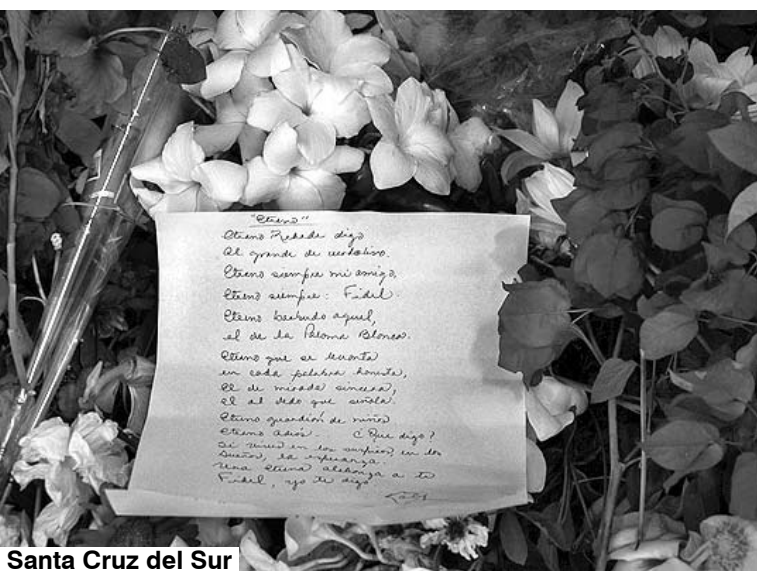 "Eterno"
Eterno Rebelde digo
al grande de verdolivo.
Eterno siempre mi amigo,
Eterno siempre: Fidel.
Eterno barbudo aquel,
el de la Paloma Blanca.
Eterno que se levanta
en cada palabra honesta,
el de mirada sincera,
el del dedo que señala.
Eterno guardián de niños
Eterno adiós. ¿Que digo?
Si vives en los suspiros, en los
sueños, la esperanza.
Una Eterna alabanza a te
Fidel, yo te digo
Santa Cruz del Sur